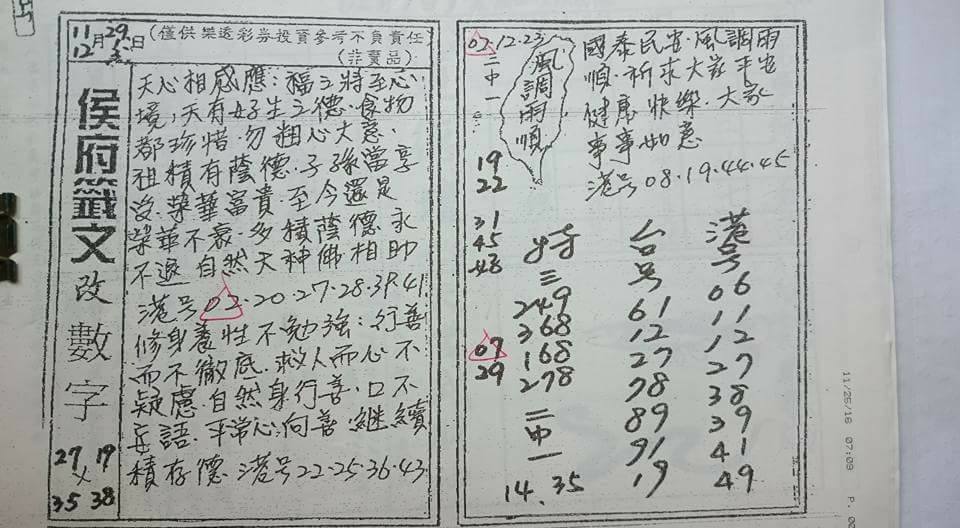 11月29日
12
(僅供樂透彩券投資參考不負責任)
(非賣品)
侯府籤文
改數字
27 19
×
35 38
天心相感應：福之將至心
境，天有好生之德·食物
都珍惜·勿粗心大意·
祖積有蔭德·子孫當享
受·榮華富貴·至今還是
榮華不衰·多積蔭德永
不退 自然天神佛相助
港号02·20·27·28·39·41·
修身養性不勉強：行善
而不徹底·救人而心不
疑慮·自然身行善·口不
妄語·平常心向善·繼續
積存德·港号22·25·36·43·
02·12·23
二中一
19
22
31
45
48
07
29
風調雨順
國泰民安·風調雨
順·祈求大家平安
健康快樂·大家
事事如意
港号08·19·44·45
特
三
249
368
168
278
三中一
14.35
台号
61
12
27
78
89
91
19
港号
06
11
12
27
38
39
41
49
11/26/16 07:09 P. 0